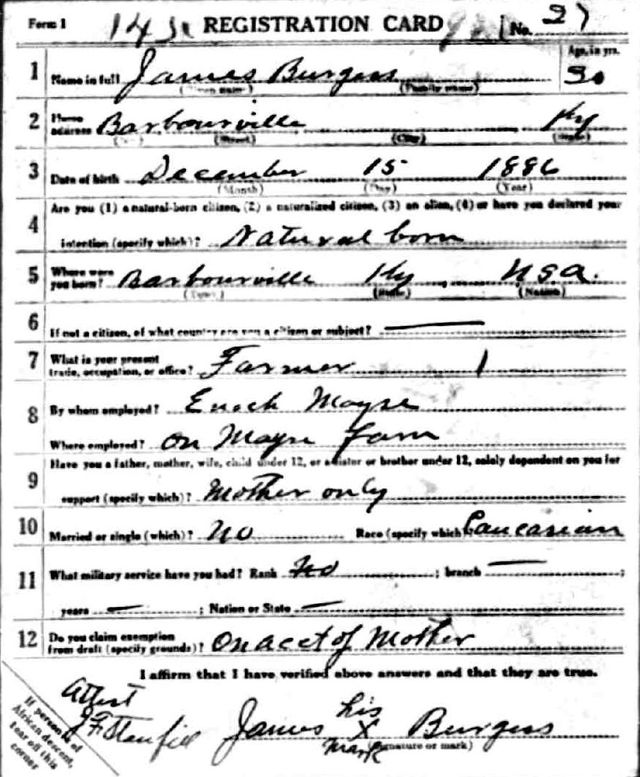 Form 1 REGISTRATION CARD No. 27
Age, in yrs.
1 Name in full James Burgess 30
(Given name) (Family name)
2 Home address Barbourville Ky
(No.) (Street) (City) (State)
3 Date of birth December 15 1886
(Month) (Day) (Year)
4 Are you (1) a natural-born citizen, (2) a naturalized citizen, (3) an alien, (4) or have you declared your
intention (specify which)? Natural born
5 Where were you born? Barbourville Ky U.S.A.
(Town) (State) (Nation)
6 If not a citizen, of what country are you a citizen or subject?
7 What is your present trade, occupation, or office? Farmer
8 By whom employed? Enoch Mayse
Where employed? On Mayse farm
9 Have you a father, mother, wife, child under 12, or a sister or brother under 12, solely dependent on you for
support (specify which)? Mother only
10 Married or single (which)? No Race (specify which)? Caucasian
11 What military service have you had? Rank No ; branch
years ; Nation or State
12 Do you claim exemption from draft (specify grounds)? On acct of Mother
I affirm that I have verified above answers and that they are true.
Attest
J F Stanfill James his X mark Burgess
(Signature or mark)
If person is of
African descent,
tear off this
corner